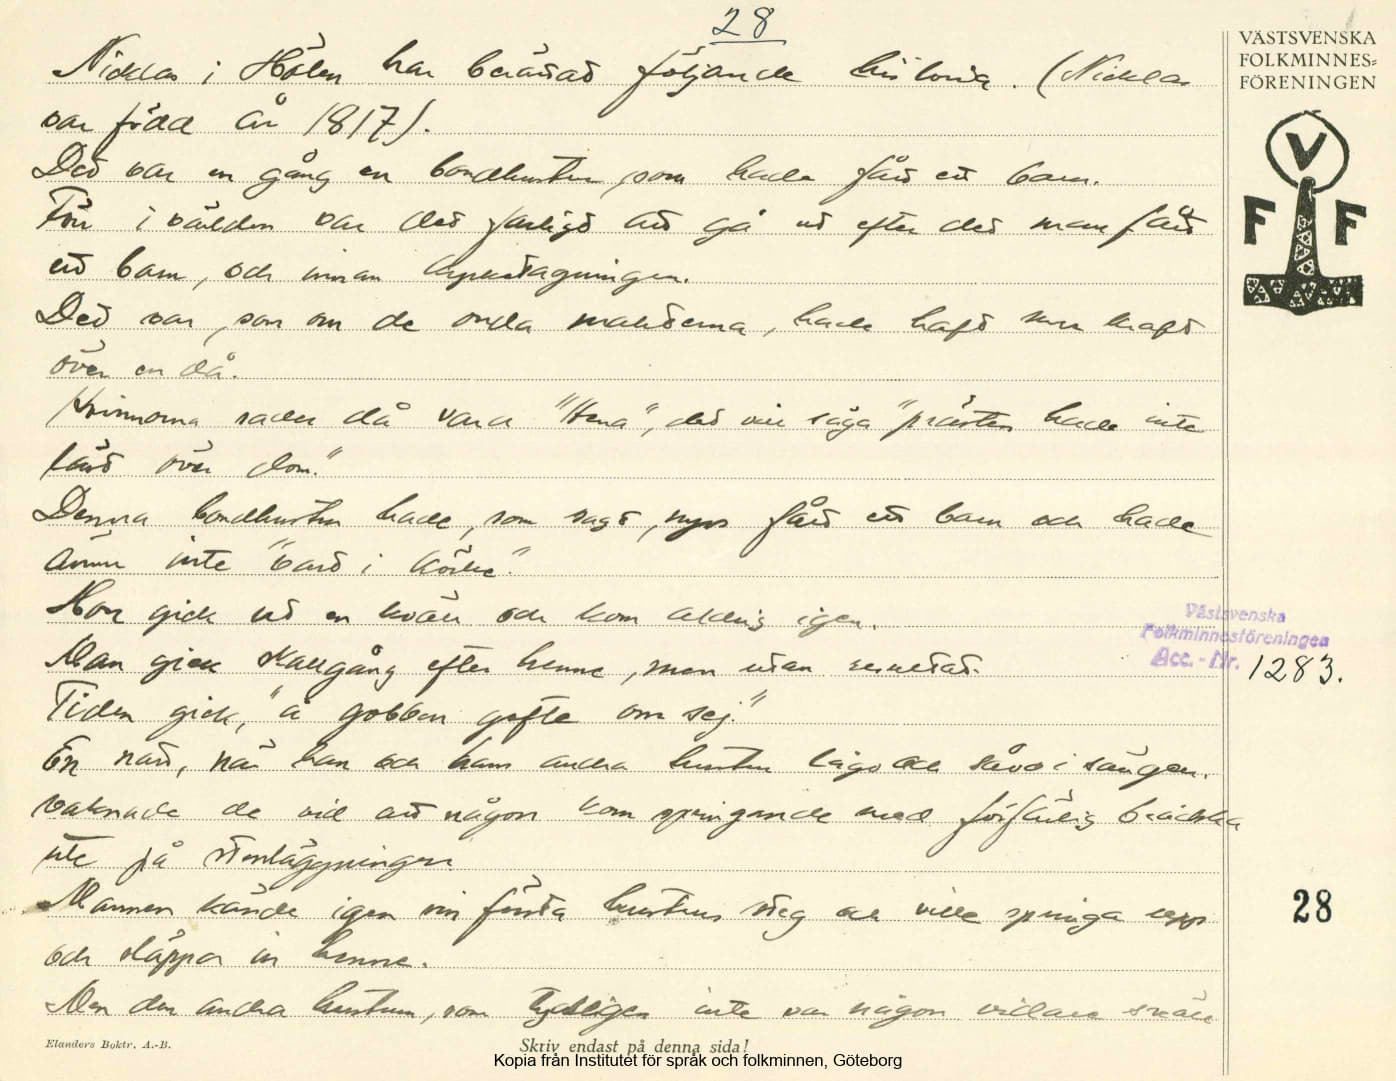 28
VÄSTSVENSKA
FOLKMINNES=
FÖRENINGEN
V
F F
Nicklas i Hålen har berättat följande historia. (Nicklas
var född år 1817).
Det var en gång en bondhustru, som hade fått ett barn.
Förr i världen var det farligt att gå ut efter det man fått
ett barn, och innan kyrkotagningen.
Det var, som om de onda makterna, hade haft mer kraft
över en då.
Kvinnorna sades då vara "Hena", det vill säga "prästen hade inte
läst över dom."
Denna bondhustru hade, som sagt, nyss fått ett barn och hade
ännu inte "vart i körke".
Hon gick ut en kväll och kom aldrig igen.
Man gick skallgång efter henne, men utan resultat.
Tiden gick, "å gobben gefte om sej."
En natt, när han och hans andra hustru lågo och sovo i sängen.
vaknade de vid att någon kom springande med förfärlig brådska
ute på stenläggningen.
Mannen kände igen sin första hustrus steg och ville springa upp
och släppa in henne.
Men den andra hustrun, som tydligen inte var någon vidare snäll
Västsvenska
Folkminnesföreningen
Acc. - Nr. 1283.
28
Elanders Boktr. A.-B.
Skriv endast på denna sida!
Kopia från Institutet för språk och folkminnen, Göteborg